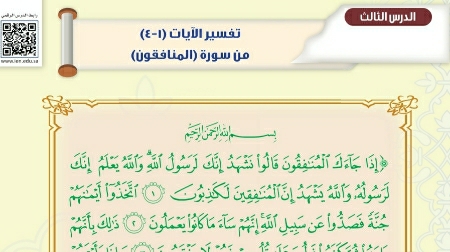 الدرس الثالث
رابط الدرس الرقمي
www.ien.edu.sa
تفسير الآيات (١-٤)
من سورة (المنافقون)
بِسْمِ اللَّهِ الرَّحْمَٰنِ الرَّحِيمِ
﴿ إِذَا جَآءَكَ ٱلْمُنَٰفِقُونَ قَالُوا۟ نَشْهَدُ إِنَّكَ لَرَسُولُ ٱللَّهِۗ وَٱللَّهُ يَعْلَمُ إِنَّكَ
لَرَسُولُهُۥ وَٱللَّهُ يَشْهَدُ إِنَّ ٱلْمُنَٰفِقِينَ لَكَٰذِبُونَ ١ ٱتَّخَذُوٓا۟ أَيْمَٰنَهُمْ
جُنَّةً فَصَدُّوا۟ عَن سَبِيلِ ٱللَّهِۚ إِنَّهُمْ سَآءَ مَا كَانُوا۟ يَعْمَلُونَ ٢ ذَٰلِكَ بِأَنَّهُمْ